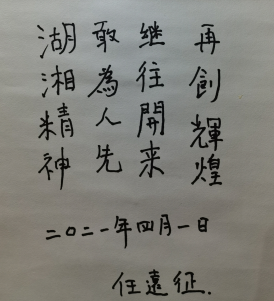 湖湘精神
敢為人先
继往開来
再創輝煌
二〇二一年四月一日
任遠征.